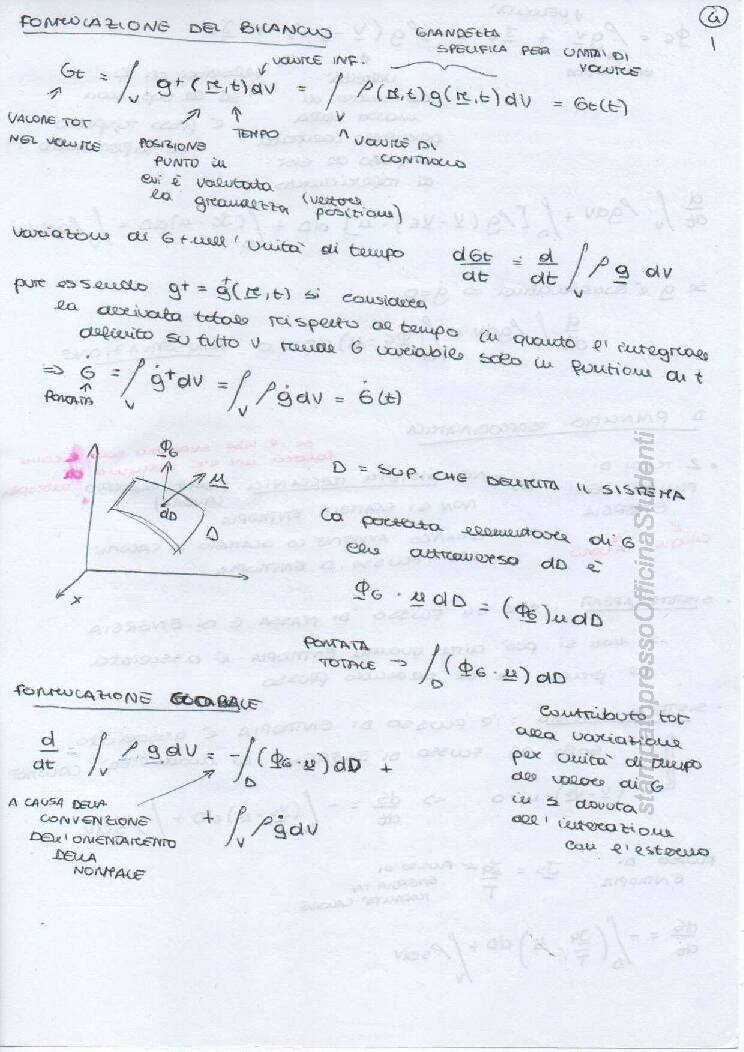 FORMULAZIONE DEL BILANCIO
G
1
GRANDEZZA
SPECIFICA PER UNITÀ DI
VOLUME
VOLUME INF.
Gt = ∫v g+ (r,t) dV = ∫v ρ(r,t) g(r,t) dV = Gt(t)
VALORE TOT
NEL VOLUME
POSIZIONE
PUNTO in
cui è valutata
la grandezza (vettore
posizione)
TEMPO
VOLUME DI
CONTROLLO
Variazioni di Gt nell'unità di tempo dGt/dt = d/dt ∫v ρ g dV
pur essendo g+ = g+(r,t) si considera
la derivata totale rispetto al tempo in quanto l'integrale
definito su tutto V rende G variabile solo in funzione di t
⇒ Ġ = ∫v ġ+ dV = ∫v ρ ġ dV = Ġ(t)
PORTATA
ΦG
n
dD
D
x
D = SUP. CHE DELIMITA IL SISTEMA
La portata elementare di G
che attraverso dD è
ΦG · n dD = (ΦG)n dD
PORTATA
TOTALE → ∫D (ΦG · n) dD
FORMULAZIONE GLOBALE
d/dt = ∫v ρ g dV = -∫D (ΦG · n) dD +
+ ∫v ρ ġ dV
A CAUSA DELLA
CONVENZIONE
DELL'ORIENTAMENTO
DELLA
NORMALE
Contributo tot
alla variazione
per unità di tempo
del valore di G
in Σ dovuta
all'interazione
con l'esterno
stampatopressoOfficinaStudenti